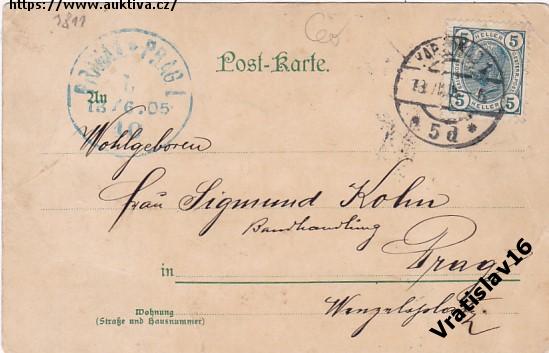 https://www.auktiva.cz/
3811
Post-Karte.
PRAHA 1 PRAG 1
13/6.05
10
5 HELLER 5
5 HELLER 5
KARLSBAD
13/
* 5d *
An
Wohlgeboren
Frau Sigmund Kohn
Bandhandlung
in Prag
Wohnung
(Straße und Hausnummer)
Vratislav16